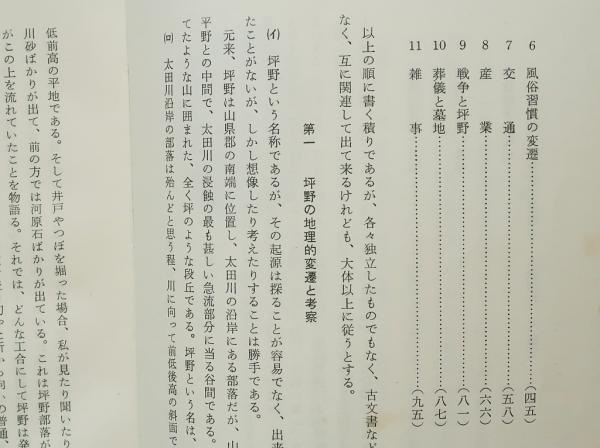 6 風俗習慣の変遷……………………………(四五)
7 交通……………………………(五八)
8 産業……………………………(六六)
9 戦争と坪野……………………………(八一)
10 葬儀と墓地……………………………(八七)
11 雑事……………………………(九五)
以上の順に書く積りであるが、各々独立したものでもなく、古文書など
なく、互に関連して出て来るけれども、大体以上に従うとする。
第一 坪野の地理的変遷と考察
(イ) 坪野という名称であるが、その起源は探ることが容易でなく、出来
たことがないが、しかし想像したり考えたりすることは勝手である。
元来、坪野は山県郡の南端に位置し、太田川の沿岸にある部落だが、山
平野との中間で、太田川の浸蝕の最も甚しい急流部分に当る谷間である。
てたような山に囲まれた、全く坪のような段丘である。坪野という名は、
(ロ) 太田川沿岸の部落は殆んどと思う程、川に向って前低後高の斜面で
低前高の平地である。そして井戸やつぼを掘った場合、私が見たり聞いたり
川砂ばかりが出て、前の方では河原石ばかりが出ている。これは坪野部落が
がこの上を流れていたことを物語る。それでは、どんな工合にして坪野は発
の普通、